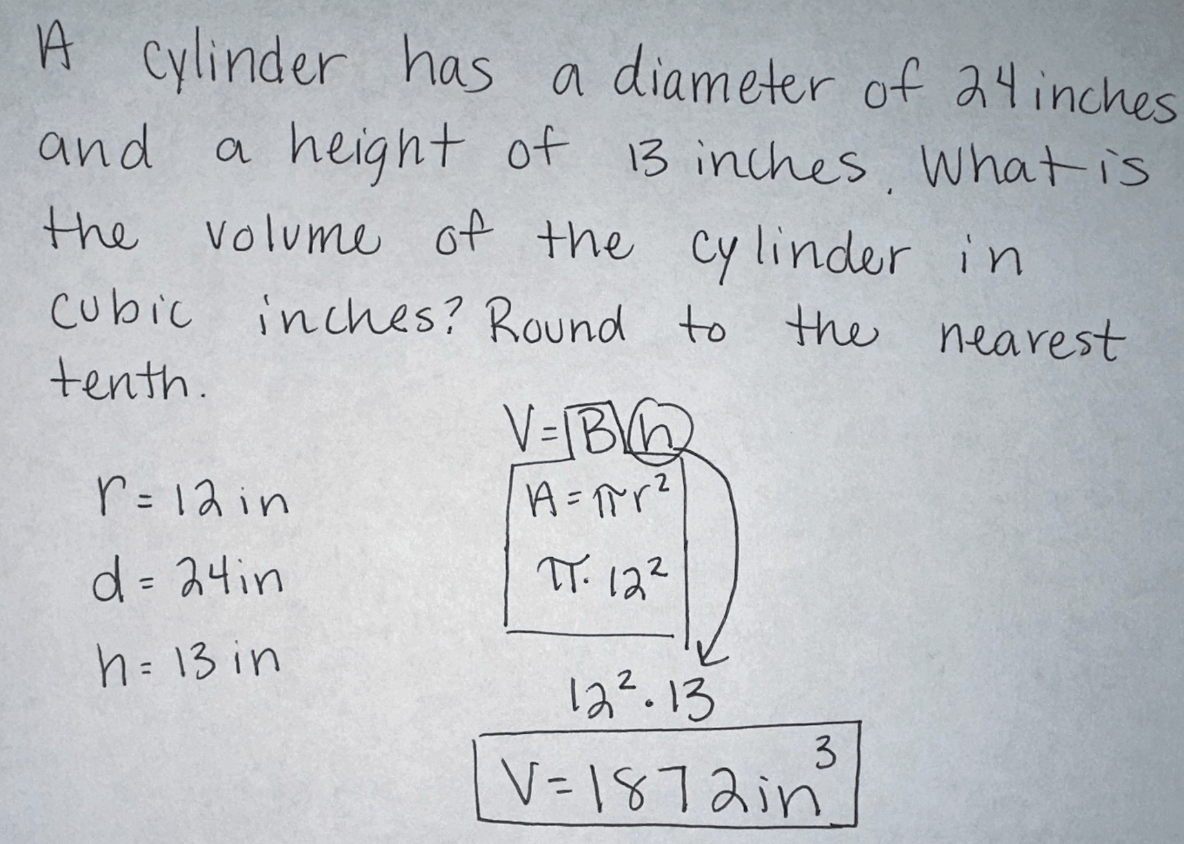 A cylinder has a diameter of 24 inches
and a height of 13 inches. What is
the volume of the cylinder in
cubic inches? Round to the nearest
tenth.
r = 12 in
d = 24 in
h = 13 in
V = Bh
A = πr²
π · 12²
12² · 13
V = 1872 in³